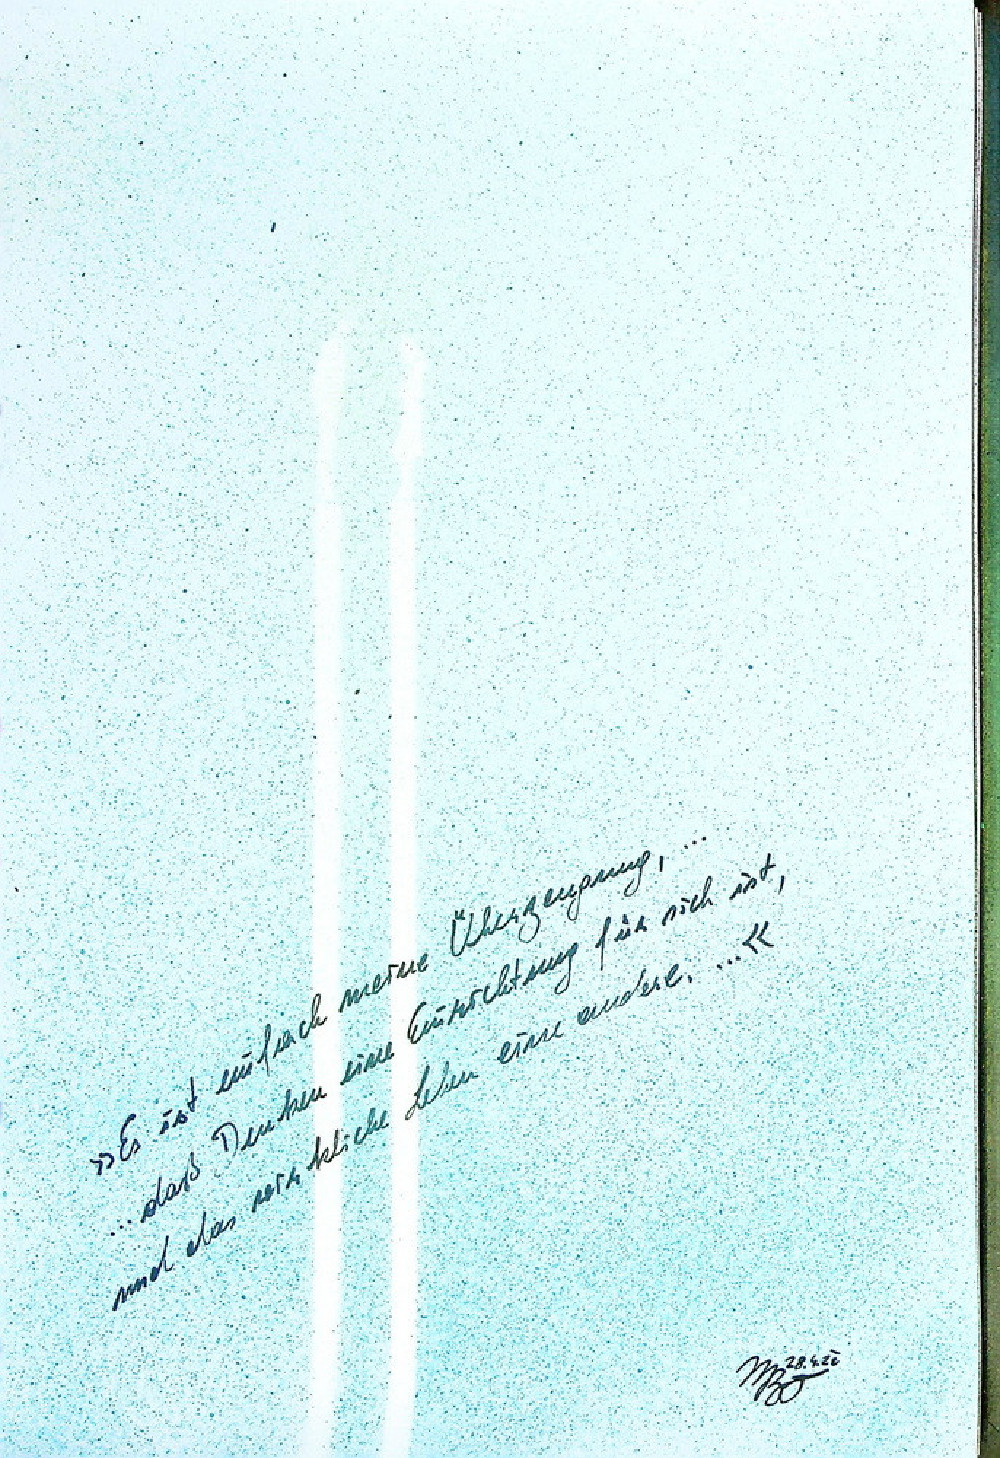 »Es ist einfach meine Überzeugung, ...
... daß Denken eine Einrichtung für sich ist,
und das wirkliche Leben eine andere. ...«
28.4.22